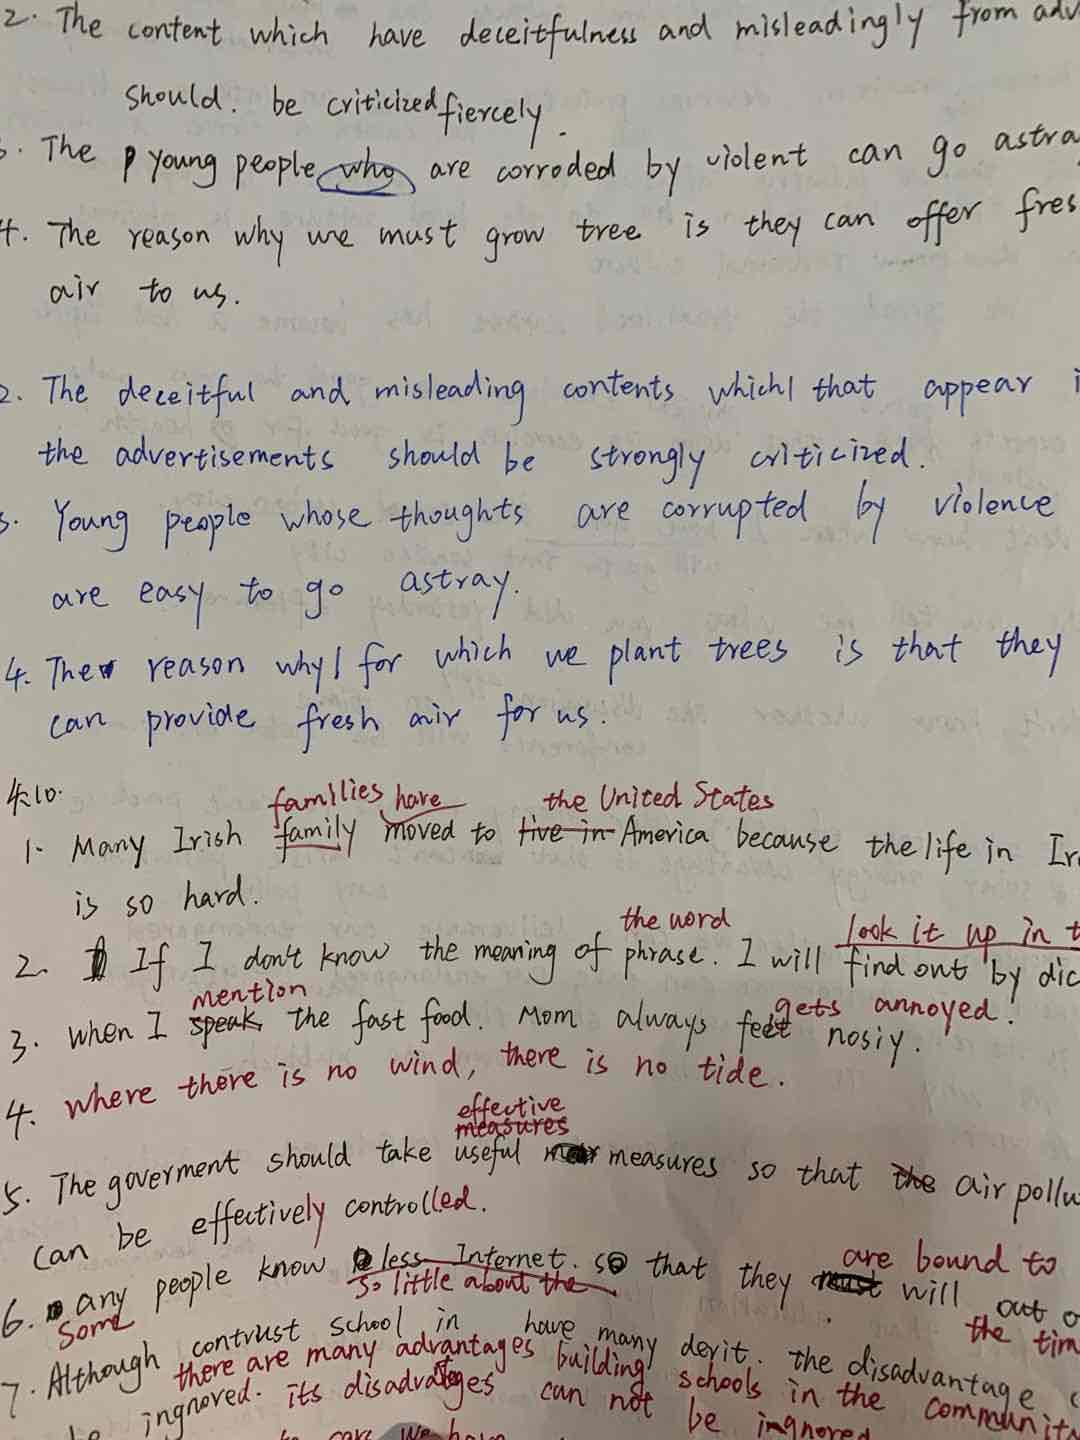 2. The content which have deceitfulness and misleadingly from adv
should. be criticized fiercely.
3. The young people who are corroded by violent can go astra
4. The reason why we must grow tree is they can offer fres
air to us.
2. The deceitful and misleading contents which/ that appear i
the advertisements should be strongly criticized.
3. Young people whose thoughts are corrupted by violence
are easy to go astray.
4. The reason why/ for which we plant trees is that they
can provide fresh air for us.
4.10.
families have the United States
1. Many Irish family moved to live in America because the life in Ire
is so hard.
the word look it up in t
2. If I don't know the meaning of phrase. I will find out by dic
mention gets annoyed.
3. when I speak the fast food. Mom always feel nosiy.
4. where there is no wind, there is no tide.
effective
measures
5. The goverment should take useful measures so that the air pollu
can be effectively controlled.
are bound to
6. any people know less Internet. so that they must will out o
Some so little about the the tim
7. Although contrust school in have many derit. the disadvantage
there are many advantages building schools in the communit
be ingnored. its disadvatages can not be ingnored
care we have